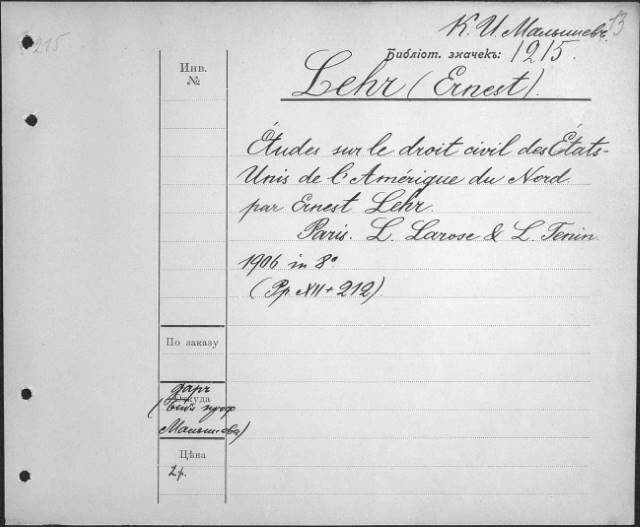 К. И. Малышевъ
13
1215
Библіот. значекъ: 1215.
Инв.
№
Lehr (Ernest).
Études sur le droit civil des États-
Unis de l'Amérique du Nord
par Ernest Lehr.
Paris. L. Larose & L. Tenin
1906 in 8°
(Pp XII + 212).
По заказу
даръ
Откуда
(библ проф
Малышева)
Цѣна
2 р.